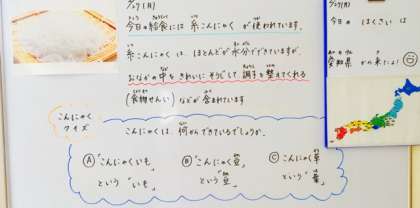 今日の給食には 糸こんにゃく が 使われています。
糸こんにゃく は、ほとんどが 水分でできていますが、
おなかの中をきれいにそうじして 調子を 整えてくれる
(食物せんい) などが 含まれています
こんにゃく
クイズ
こんにゃくは、何からできているでしょうか。
Ⓐ「こんにゃくいも」
という「いも」
Ⓑ「こんにゃく豆」
という「豆」
Ⓒ「こんにゃく草」
という「葉」
今日の はくさいは
愛知県から来たよ!